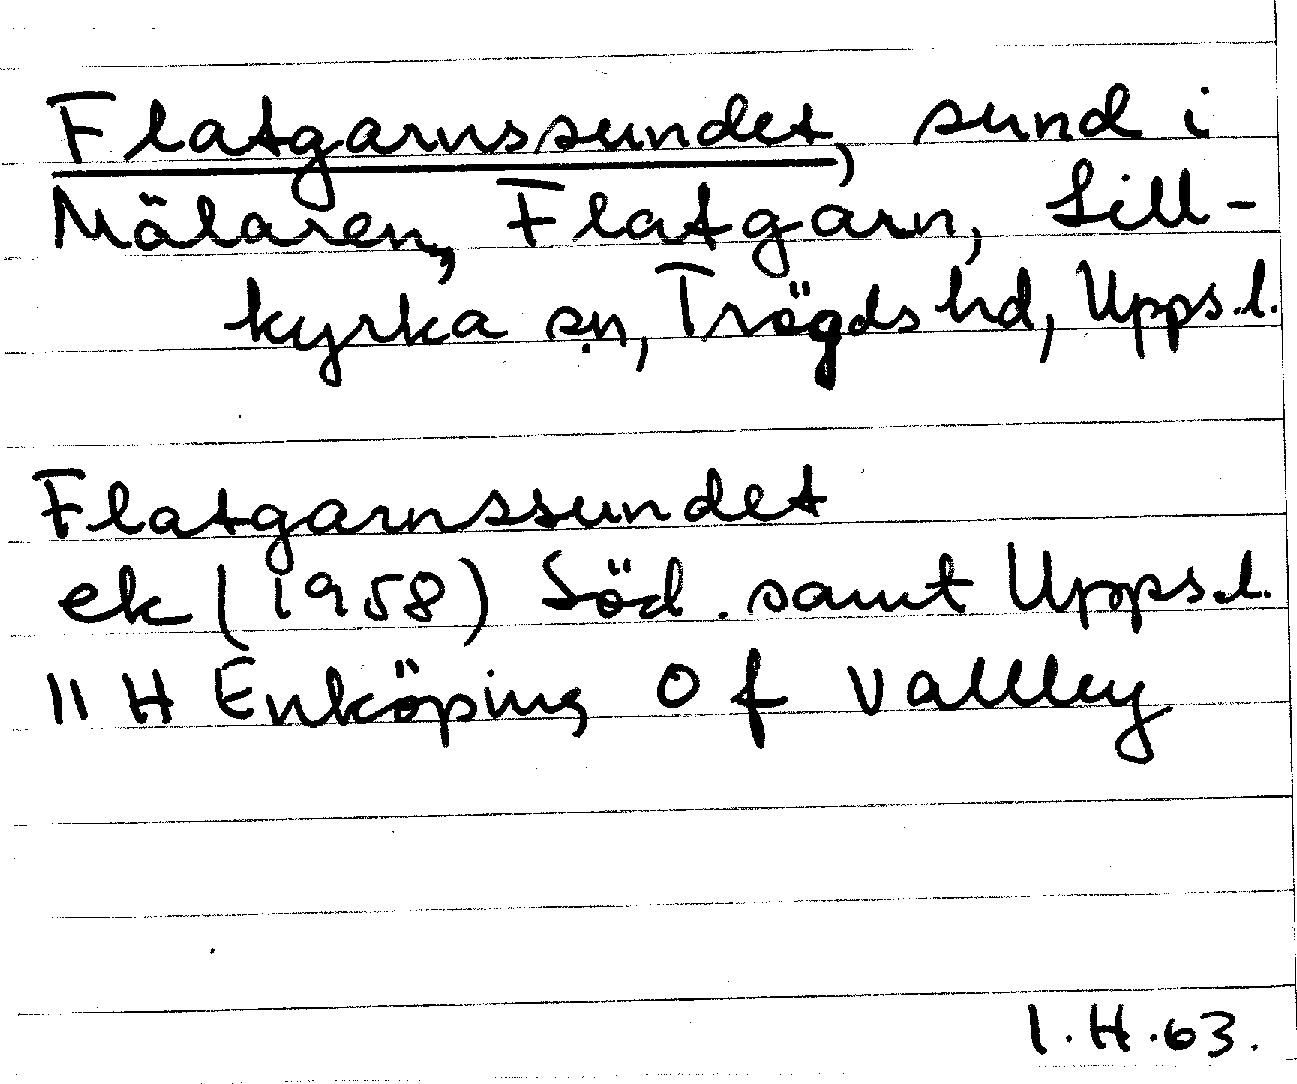 Flatgarnssundet, sund i
Mälaren, Flatgarn, Lill-
kyrka sn, Trögds hd, Upps.l.
Flatgarnssundet
ek (1958) Söd. samt Upps.l.
11 H Enköping O f vallley
1.H.63.